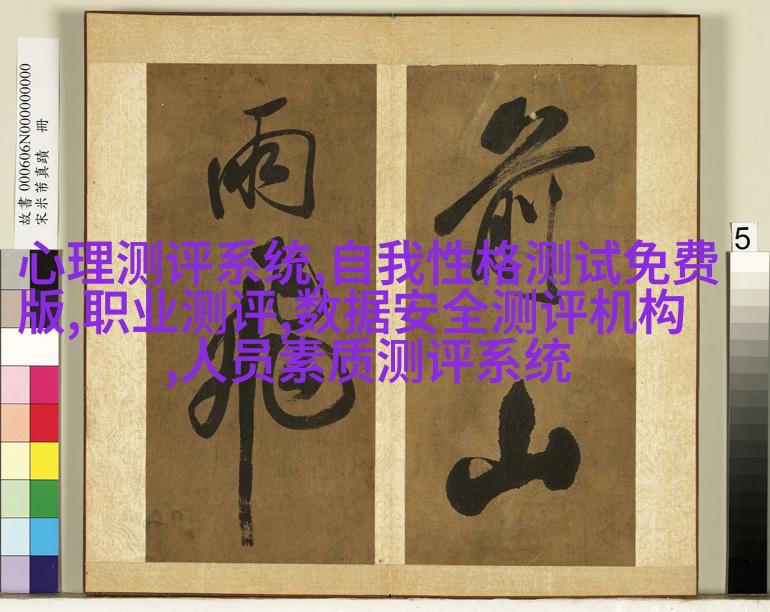 故書 000606N000000000
宋米芾真蹟 冊
前山
雨飛
5
心理测评系统,自我性格测试免费
版,职业测评,数据安全测评机构
,人员素质测评系统